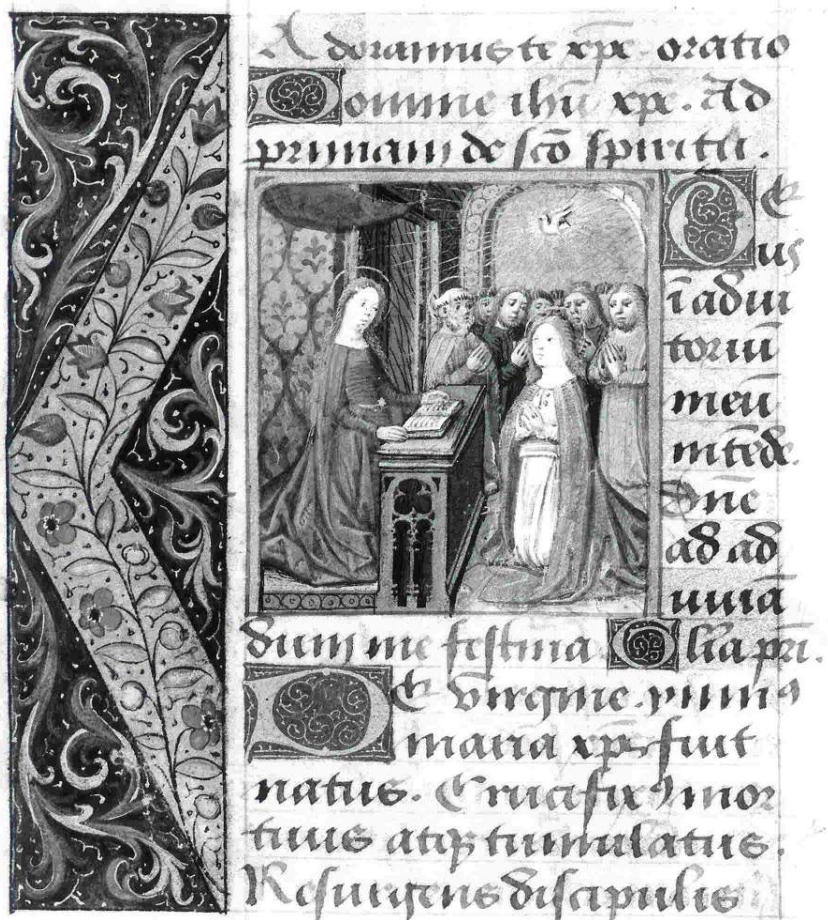 Adoramus te xpe. oratio
Domine ihu xpe. Ad
primam de sco spiritu.
De
us
i adiu
toriu
meu
intede.
Dne
ad ad
iuua
dum me festina Glia pri.
De virgine
maria xps fuit
natus. Crucifixꝰ mor
tuus atqꝫ tumulatus.
Resurgens discipulis